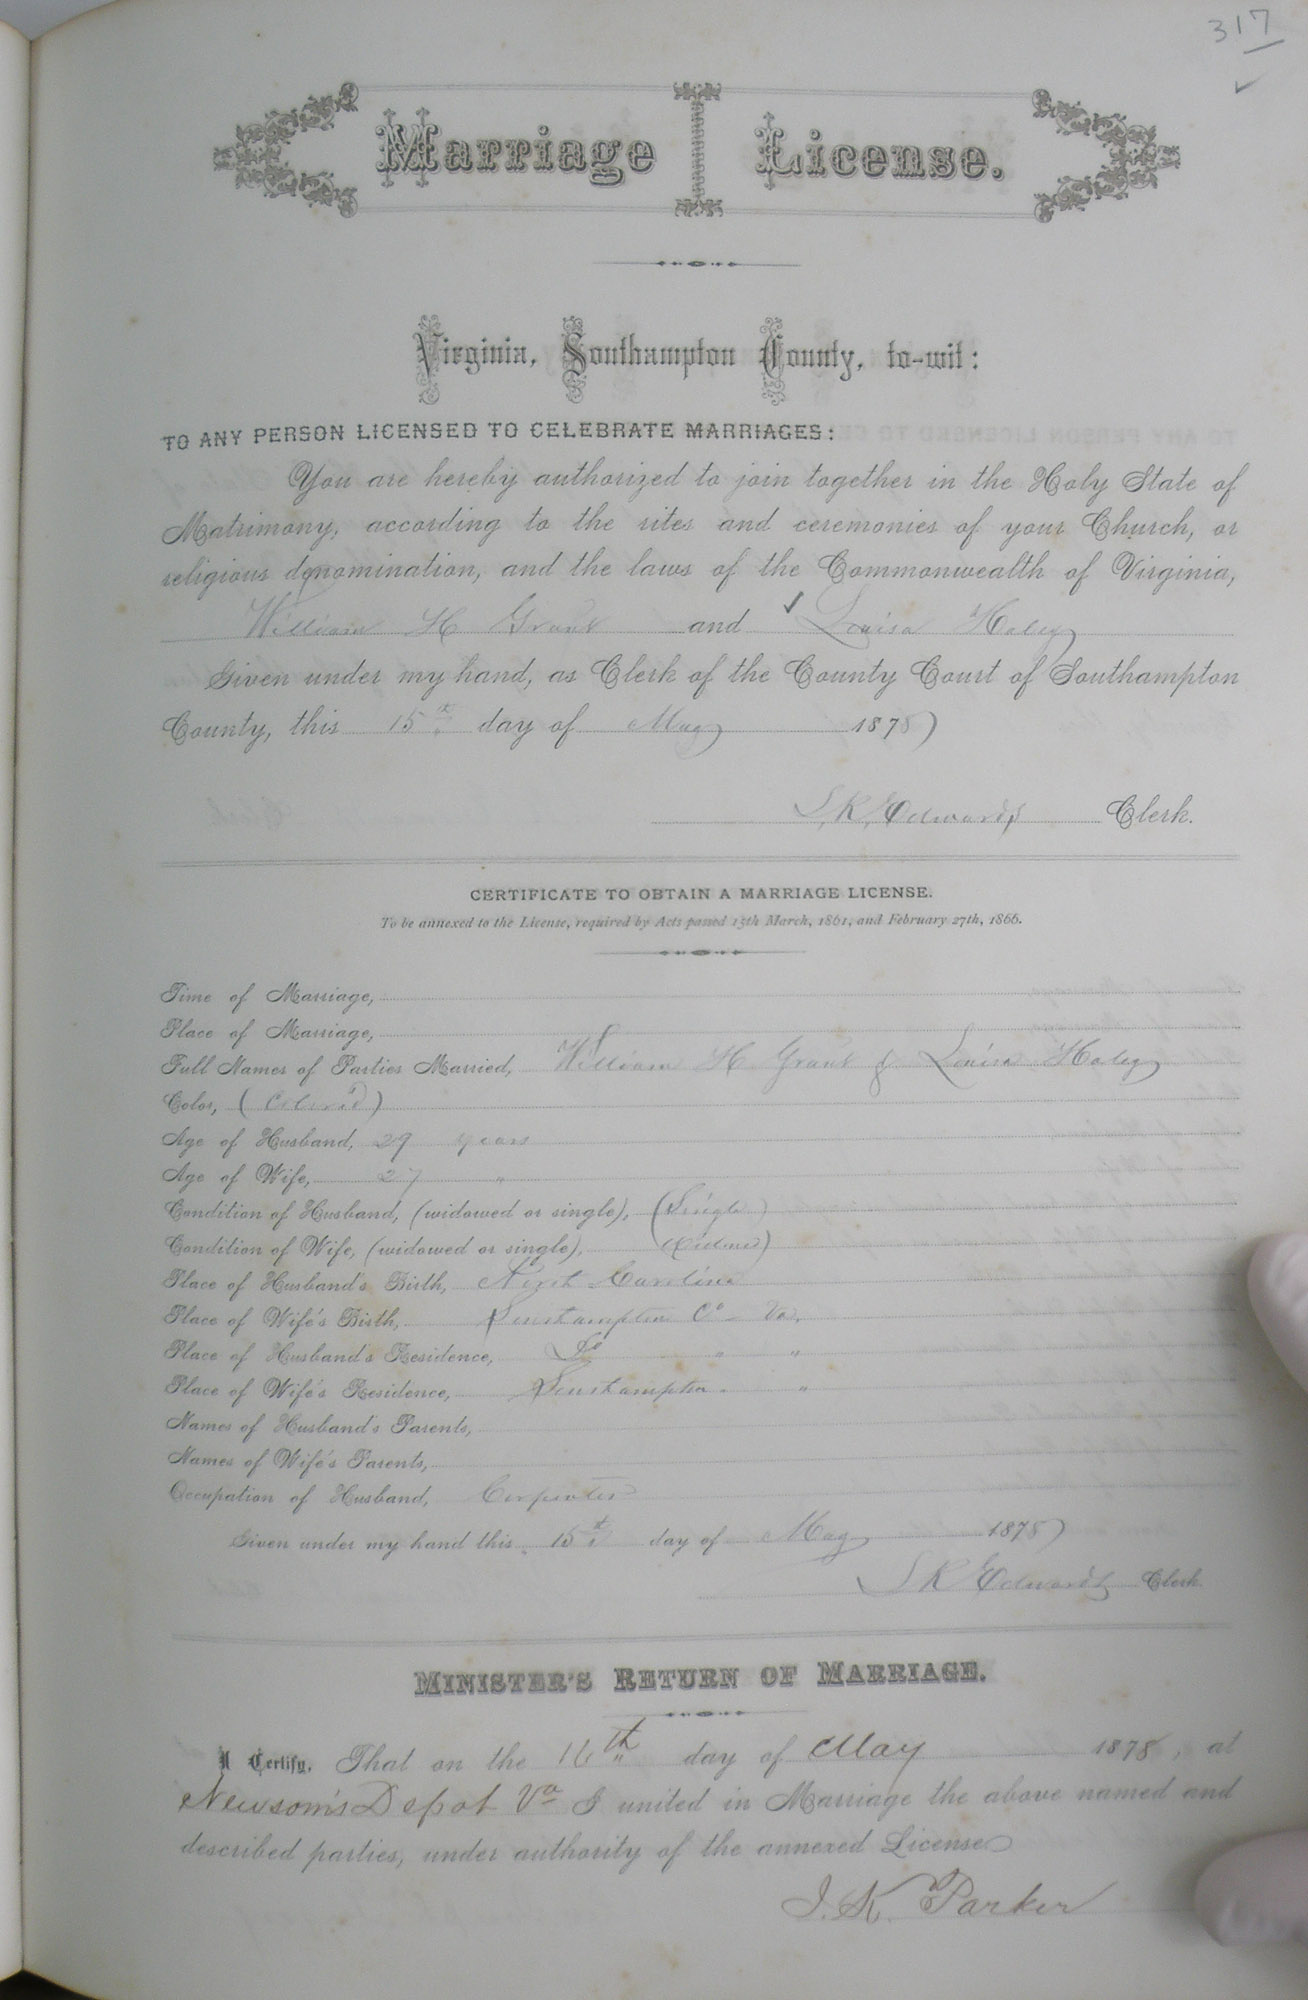 317
Marriage License.
Virginia, Southampton County, to-wit:
TO ANY PERSON LICENSED TO CELEBRATE MARRIAGES:
You are hereby authorized to join together in the Holy State of
Matrimony, according to the rites and ceremonies of your Church, or
religious denomination, and the laws of the Commonwealth of Virginia,
William H Grant and Louisa Haley
Given under my hand, as Clerk of the County Court of Southampton
County, this 15th day of May 1878
L. R. Edwards Clerk.
CERTIFICATE TO OBTAIN A MARRIAGE LICENSE.
To be annexed to the License, required by Acts passed 15th March, 1861, and February 27th, 1866.
Time of Marriage,
Place of Marriage,
Full Names of Parties Married, William H. Grant & Louisa Haley
Color, (Colored)
Age of Husband, 29 years
Age of Wife, 27 "
Condition of Husband, (widowed or single), (Single)
Condition of Wife, (widowed or single), (Widowed)
Place of Husband's Birth, North Carolina
Place of Wife's Birth, Southampton Co - Va,
Place of Husband's Residence, Do " "
Place of Wife's Residence, Southampton "
Names of Husband's Parents,
Names of Wife's Parents,
Occupation of Husband, Carpenter
Given under my hand this 15th day of May 1878
L R Edwards Clerk
MINISTER'S RETURN OF MARRIAGE.
I Certify, That on the 16th day of May 1878, at
Newsom's Depot Va I united in Marriage the above named and
described parties, under authority of the annexed License
J. K. Parker